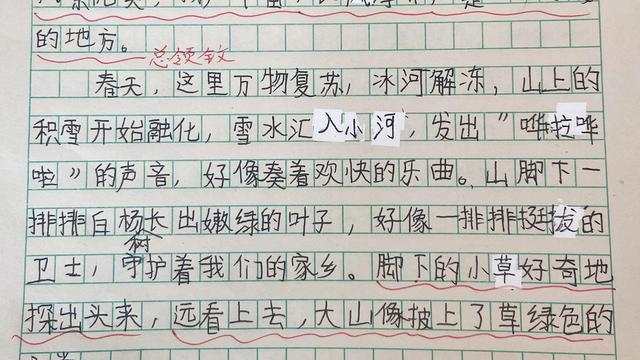 的地方。
总领全文
春天，这里万物复苏，冰河解冻，山上的
积雪开始融化，雪水汇入小河，发出“哗拉哗
啦”的声音，好像奏着欢快的乐曲。山脚下一
排排白杨树长出嫩绿的叶子，好像一排排挺拔的
卫士，守护着我们的家乡。脚下的小草好奇地
探出头来，远看上去，大山像披上了草绿色的